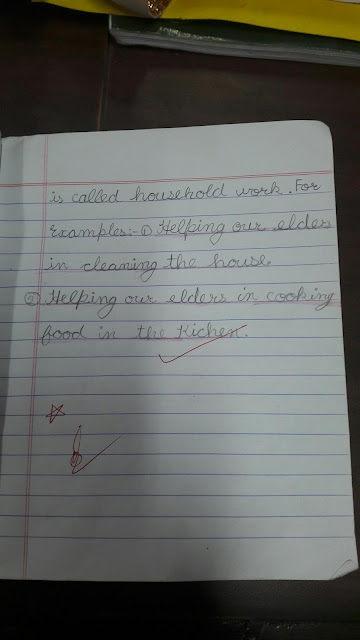 is called household work. For
Examples:- ① Helping our elders
in cleaning the house.
② Helping our elders in cooking
food in the Kichen.